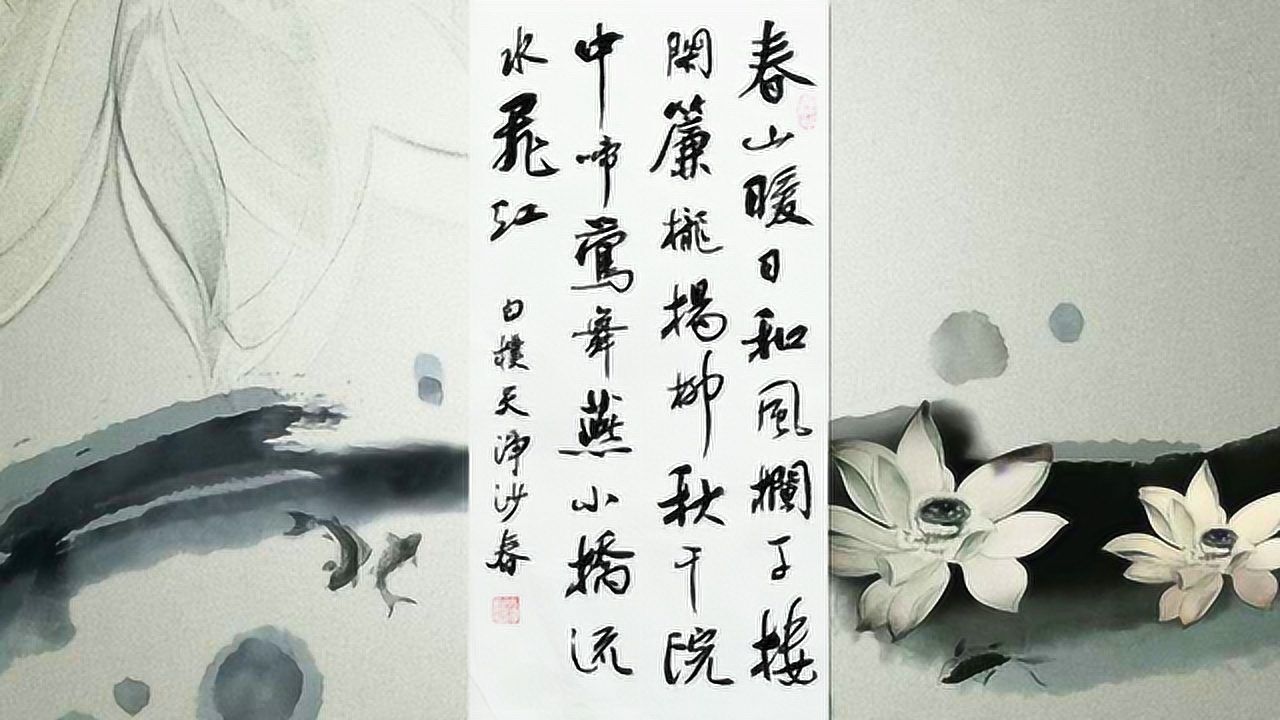 春山暖日和風欄干樓
閣簾櫳楊柳秋千院
中啼鶯舞燕小橋流
水飛紅
白樸天淨沙春